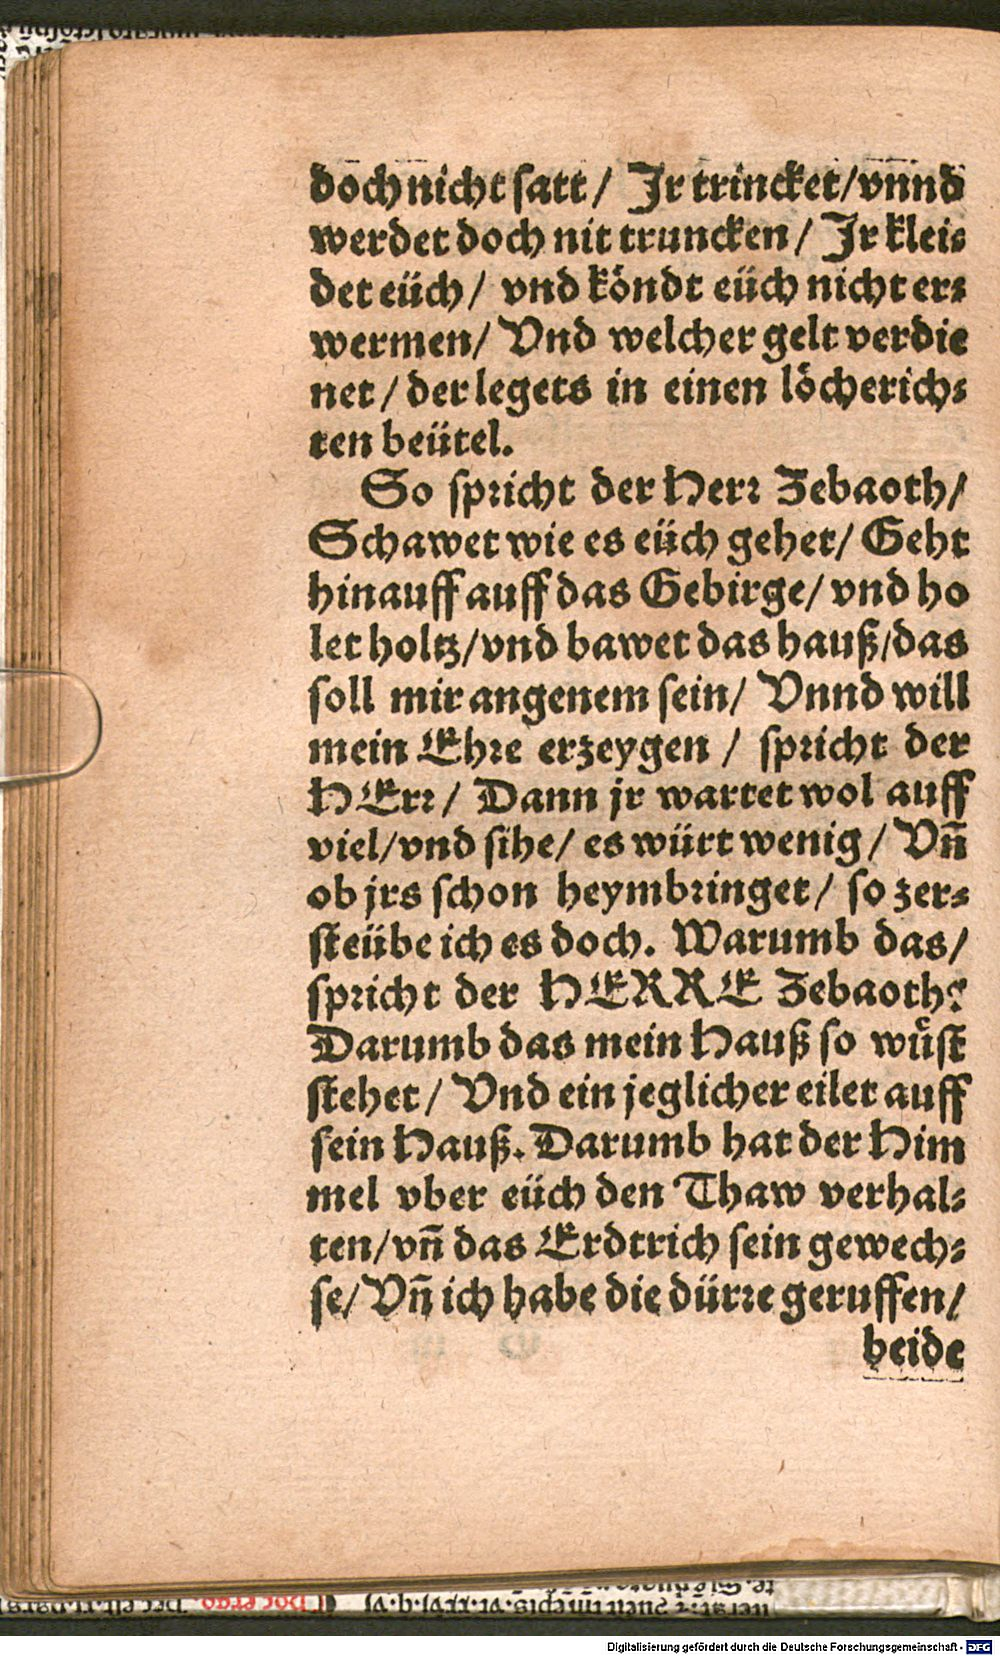 doch nicht satt / Jr trincket/vnnd
werdet doch nit truncken / Jr klei⸗
det eüch / vnd köndt eüch nicht er⸗
wermen / Vnd welcher gelt verdie
net / der legets in einen löcherich⸗
ten beütel.
So spricht der Herr Zebaoth /
Schawet wie es eüch gehet / Geht
hinauff auff das Gebirge / vnd ho
let holtz /vnd bawet das hauß /das
soll mir angenem sein / Vnnd will
mein Ehre erzeygen / spricht der
HErr / Dann jr wartet wol auff
viel /vnd sihe / es würt wenig / Vn̄
ob jrs schon heymbringet / so zer⸗
steübe ich es doch. Warumb das /
spricht der HERRE Zebaoth?
Darumb das mein Hauß so wuͤst
stehet / Vnd ein jeglicher eilet auff
sein Hauß. Darumb hat der Him
mel vber eüch den Thaw verhal⸗
ten /vn̄ das Erdtrich sein gewech⸗
se / Vn̄ ich habe die dürre geruffen /
beide
Digitalisierung gefördert durch die Deutsche Forschungsgemeinschaft - DFG